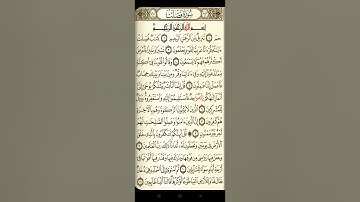 سورة فصلت
بسم الله الرحمن الرحيم
حم ١ تنزيل من الرحمن الرحيم ٢ كتاب فصلت
ءاياته قرءانا عربيا لقوم يعلمون ٣ بشيرا ونذيرا فأعرض
أكثرهم فهم لا يسمعون ٤ وقالوا قلوبنا في أكنة
مما تدعونا إليه وفي ءاذاننا وقر ومن بيننا وبينك حجاب
فاعمل إننا عاملون ٥ قل إنما أنا بشر مثلكم يوحى إلي
أنما إلهكم إله واحد فاستقيموا إليه واستغفروه وويل
للمشركين ٦ الذين لا يؤتون الزكوة وهم بالءاخرة هم
كافرون ٧ إن الذين ءامنوا وعملوا الصالحات لهم
أجر غير ممنون ٨ قل أئنكم لتكفرون بالذي خلق
الأرض في يومين وتجعلون له أندادا ذلك رب العالمين ٩
وجعل فيها رواسي من فوقها وبارك فيها وقدر فيها
أقواتها في أربعة أيام سواء للسائلين ١٠ ثم استوى إلى السماء وهي دخان
فقال لها وللأرض ائتيا طوعا أو كرها قالتا أتينا طائعين ١١